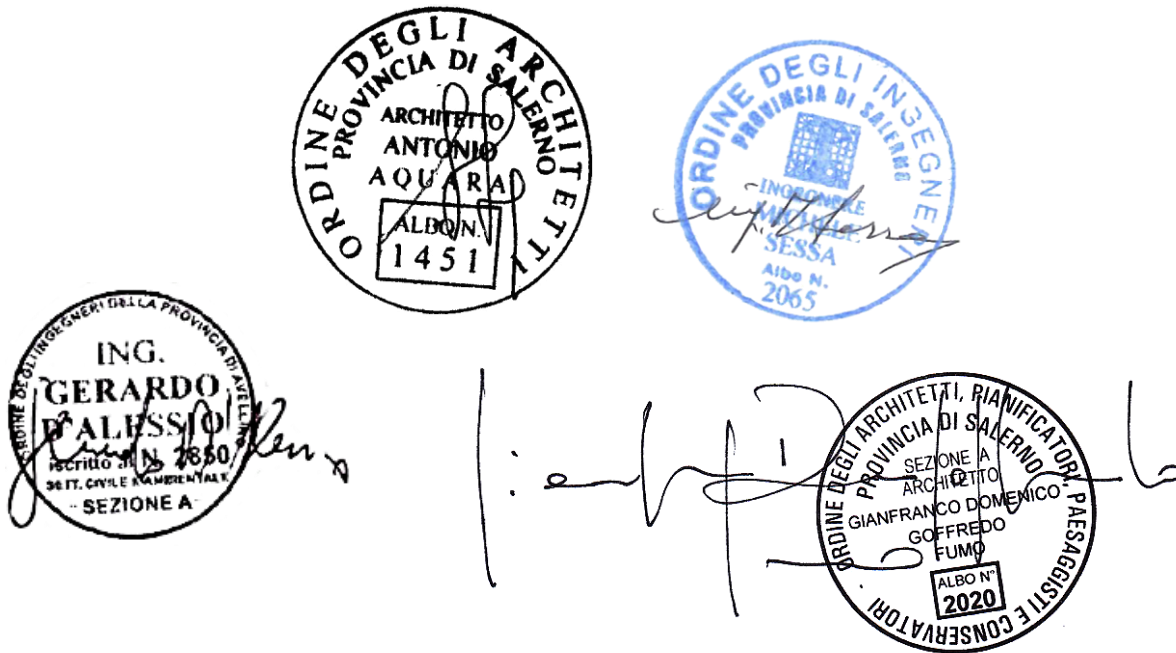 ORDINE DEGLI ARCHITETTI
PROVINCIA DI SALERNO
ARCHITETTO
ANTONIO
AQUARA
ALBO N.
1451
ORDINE DEGLI INGEGNERI
PROVINCIA DI SALERNO
INGEGNERE
MICHELE
SESSA
Albo N.
2065
ORDINE DEGLI INGEGNERI DELLA PROVINCIA DI AVELLINO
ING.
GERARDO
D'ALESSIO
iscritto al N. 2850
SETT. CIVILE E AMBIENTALE
SEZIONE A
ORDINE DEGLI ARCHITETTI, PIANIFICATORI, PAESAGGISTI E CONSERVATORI
PROVINCIA DI SALERNO
SEZIONE A
ARCHITETTO
GIANFRANCO DOMENICO
GOFFREDO
FUMO
ALBO N°
2020